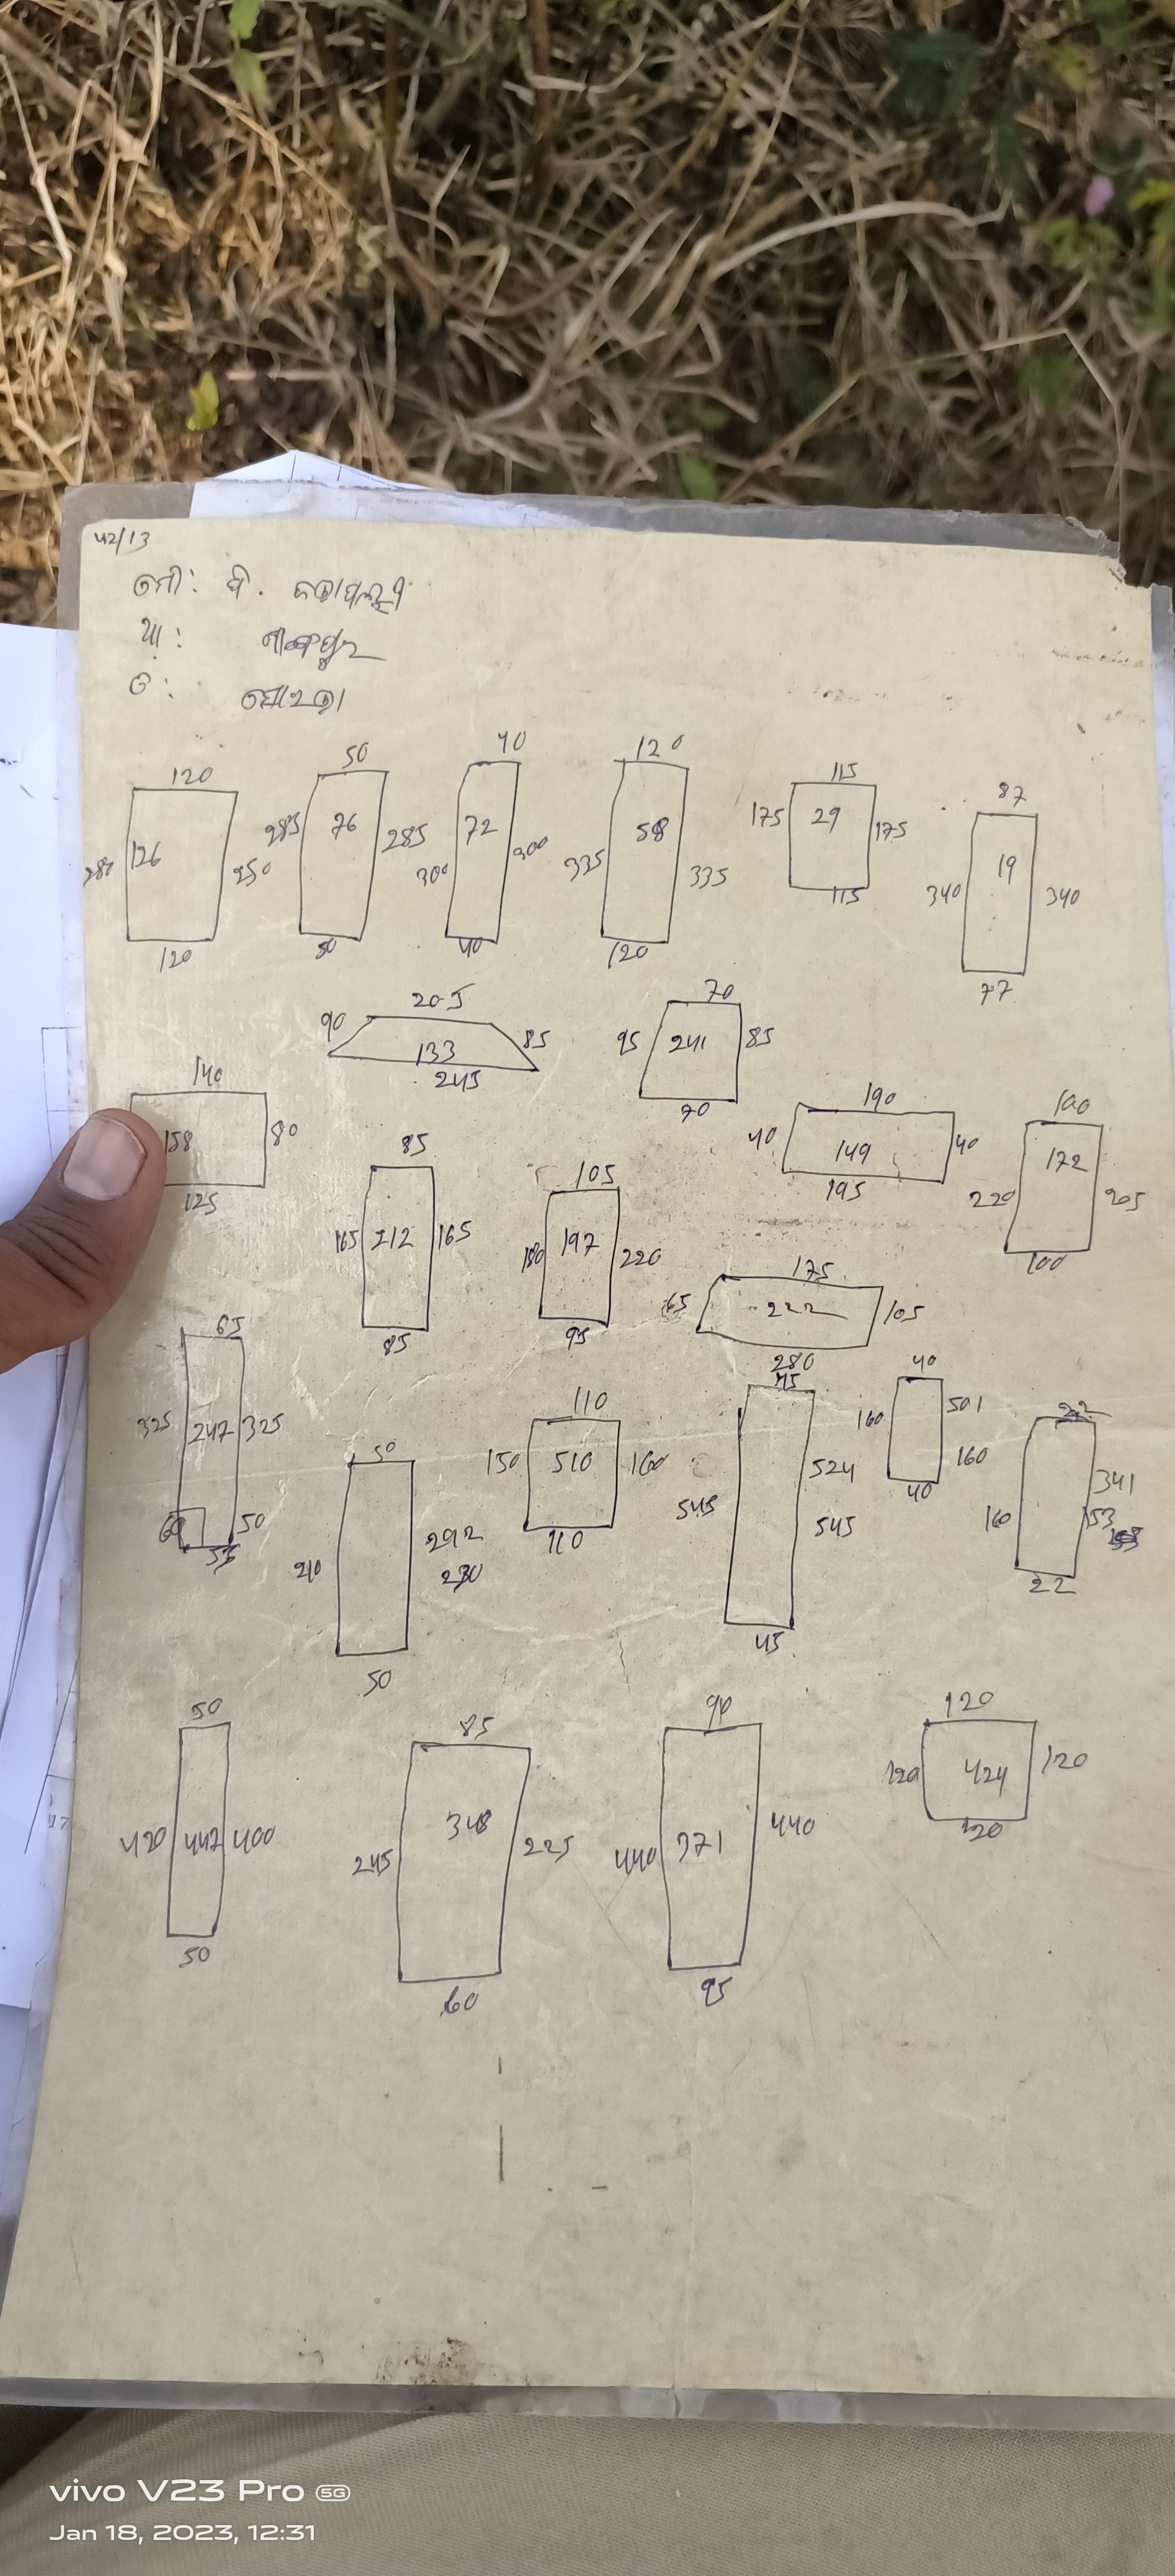 42/13
120
280 126 250
120
50
285 76 285
50
40
300 72 300
40
120
335 58 335
120
115
175 29 175
115
87
340 19 340
77
205
90 133 85
245
70
95 241 85
70
140
158 80
125
85
165 212 165
85
105
180 197 220
95
190
40 149 40
195
100
220 172 205
100
175
65 222 105
280
65
325 247 325
60 50
50
210 292
230
50
110
150 510 160
110
45
524
545 545
45
40
160 501
160
40
22
341
160 153
22
50
420 447 400
50
85
348
245 225
60
90
440 371 440
95
120
120 424 120
120
vivo V23 Pro 5G
Jan 18, 2023, 12:31